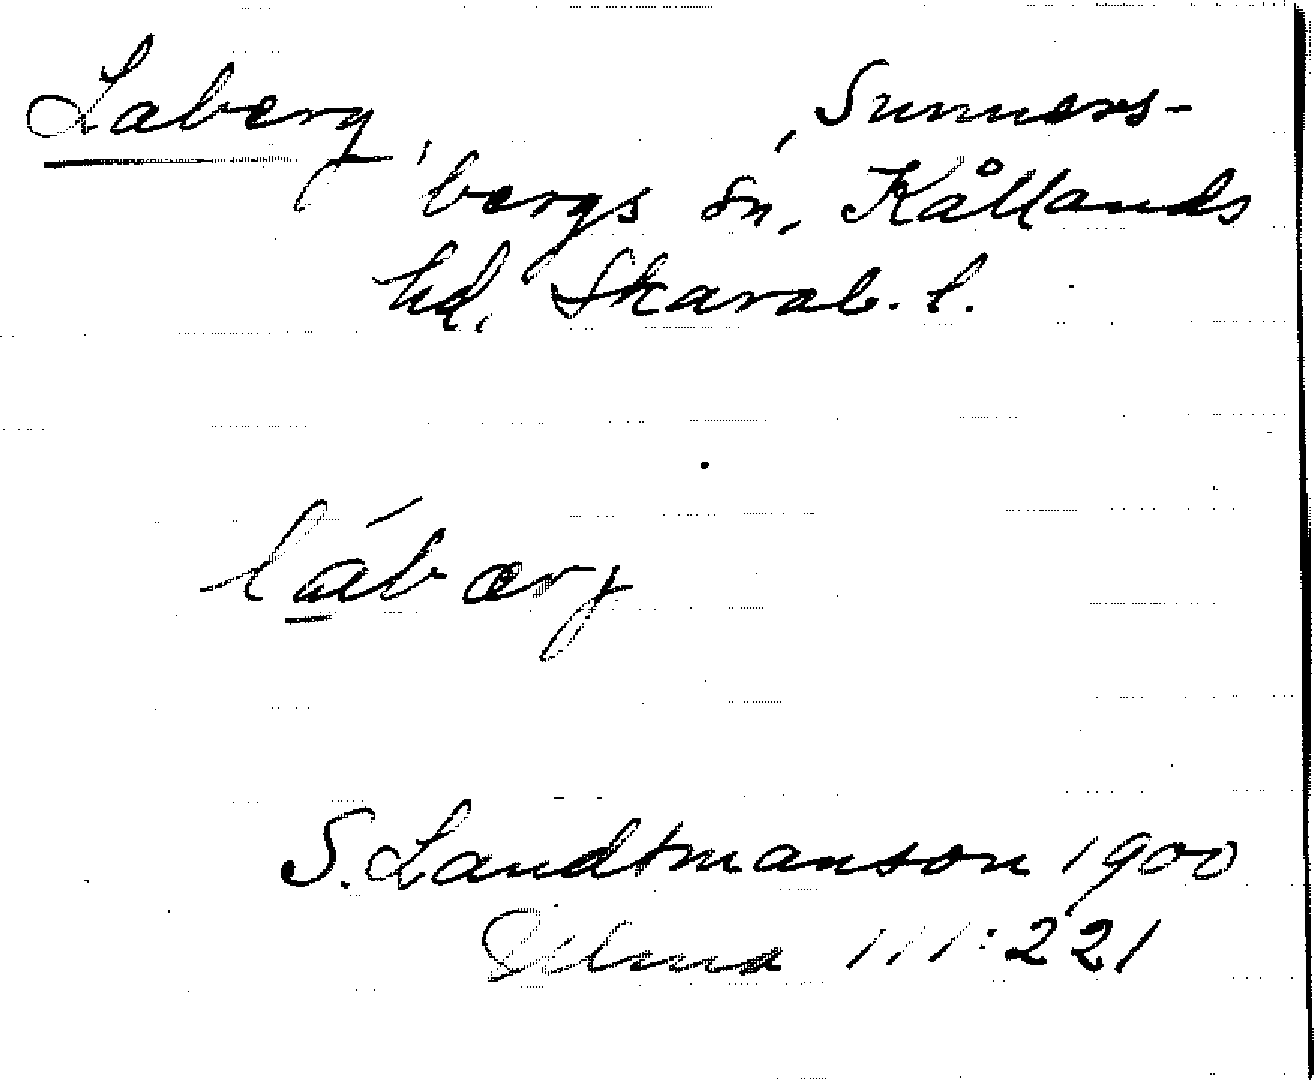 Laberg, , Sunners-
bergs sn, Kållands
hd, Skarab. l.
láb ærj
S. Landtmanson 1900
Ulma 111:221